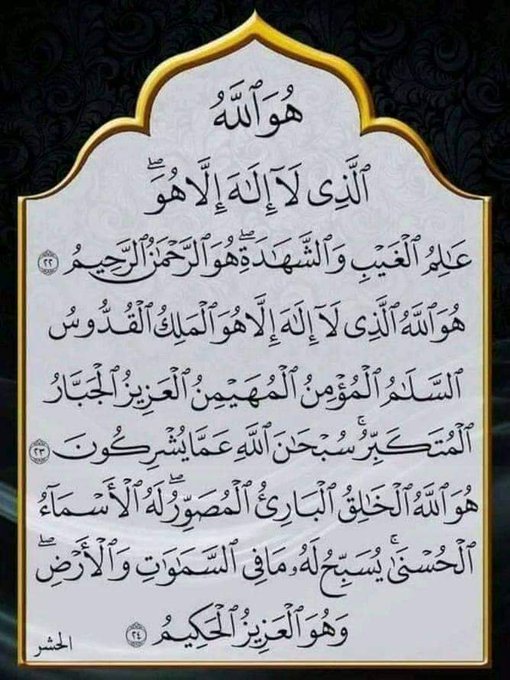 هُوَ ٱللَّهُ
ٱلَّذِى لَآ إِلَٰهَ إِلَّا هُوَۖ
عَٰلِمُ ٱلْغَيْبِ وَٱلشَّهَٰدَةِۖ هُوَ ٱلرَّحْمَٰنُ ٱلرَّحِيمُ ٢٢
هُوَ ٱللَّهُ ٱلَّذِى لَآ إِلَٰهَ إِلَّا هُوَ ٱلْمَلِكُ ٱلْقُدُّوسُ
ٱلسَّلَٰمُ ٱلْمُؤْمِنُ ٱلْمُهَيْمِنُ ٱلْعَزِيزُ ٱلْجَبَّارُ
ٱلْمُتَكَبِّرُۚ سُبْحَٰنَ ٱللَّهِ عَمَّا يُشْرِكُونَ ٢٣
هُوَ ٱللَّهُ ٱلْخَٰلِقُ ٱلْبَارِئُ ٱلْمُصَوِّرُۖ لَهُ ٱلْأَسْمَآءُ
ٱلْحُسْنَىٰۚ يُسَبِّحُ لَهُۥ مَا فِى ٱلسَّمَٰوَٰتِ وَٱلْأَرْضِۖ
وَهُوَ ٱلْعَزِيزُ ٱلْحَكِيمُ ٢٤
الحشر